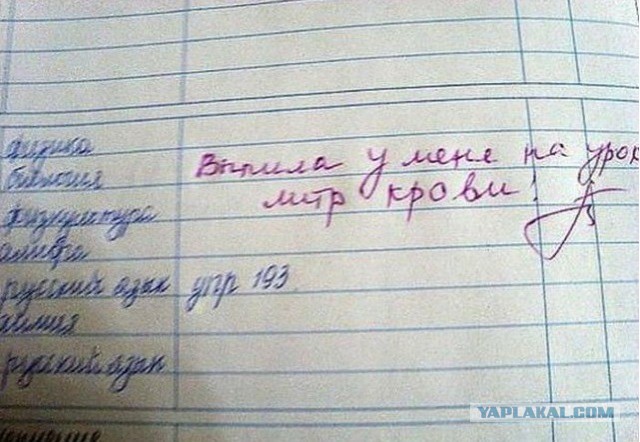 физика
биология
Выпила у меня на урок
литр крови!
физкультура
алгебра
русский язык упр 193.
химия
русский язык
YAPLAKAL.COM